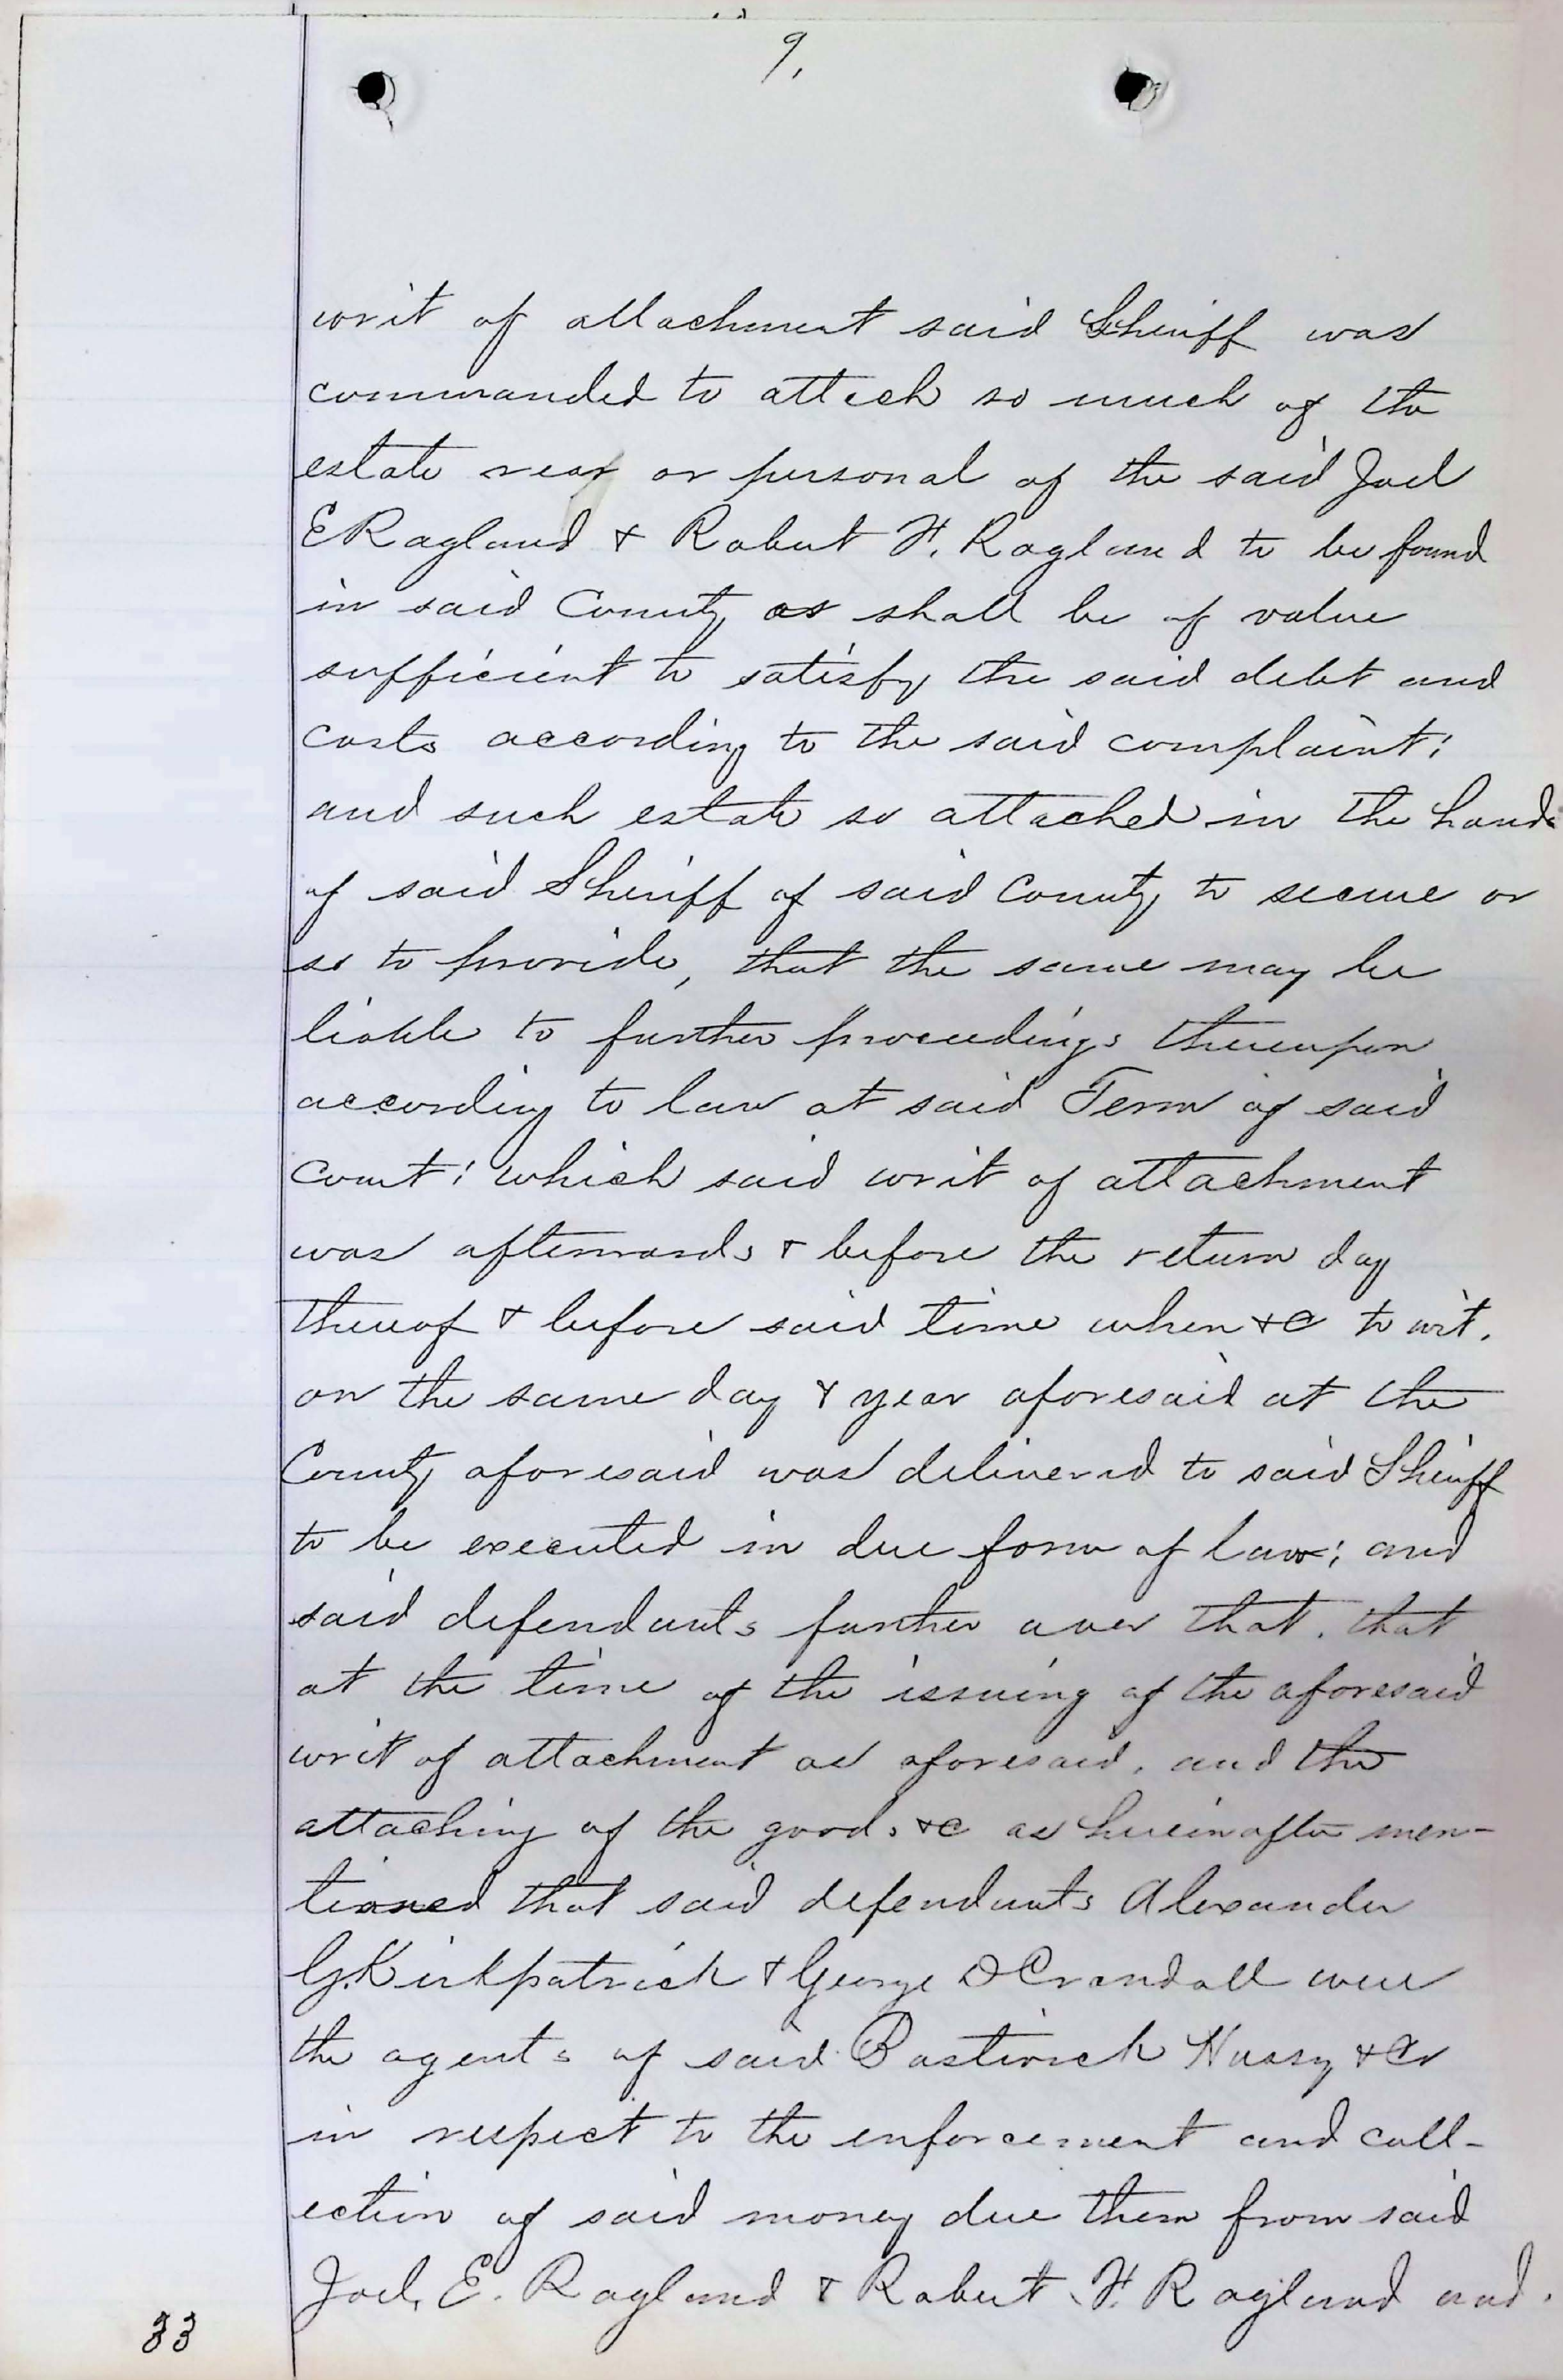 9.
writ of attachment said Sheriff was
commanded to attach so much of the
estate real or personal of the said Joel
E Ragland & Robert F. Ragland to be found
in said County as shall be of value
sufficient to satisfy the said debt and
costs according to the said complaint;
and such estate so attached in the hands
of said Sheriff of said County to secure or
so to provide, that the same may be
liable to further proceedings thereupon
according to law at said Term of said
court; which said writ of attachment
was afterwards & before the return day
thereof & before said time when &c to wit.
on the same day & year aforesaid at the
County aforesaid was delivered to said Sheriff
to be executed in due form of law; and
said defendants further aver that. that
at the time of the issuing of the aforesaid
writ of attachment as aforesaid, and the
attaching of the goods &c as hereinafter men-
tioned that said defendants Alexander
G. Kirkpatrick & George D Crandall were
the agents of said Bostwick Hussy & Co
in respect to the enforcement and coll-
ection of said money due them from said
Joel, E. Ragland & Robert F. Ragland and.
33